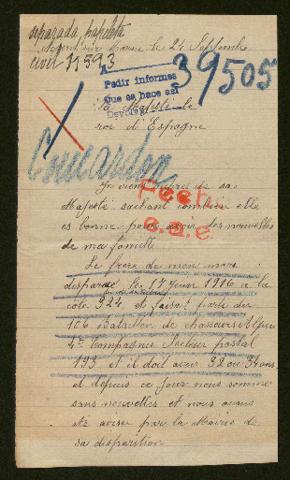 separada, papeleta
Nogent sur Marne le 24 Septembre
civil 11593
39505
A
Pedir informes
que se hace así
Devolver
Sa Majesté le
roi d'Espagne
Je viens auprès de sa
Majesté sachant combien elle
est bonne pour avoir des nouvelles
de ma famille
Fecha
c.a.e.
Le frere de mon mari
disparue le 17 fevrier 1916 a la
cote 924 et faisait partie du
106 Bataillon de chasseurs Alpin
4e Compagnie Secteur postal
193 et il doit avoir 32 ou 34 ans
et depuis ce jour nous somme
sans nouvelles et nous avons
été aviser par la Mairie de
sa disparition